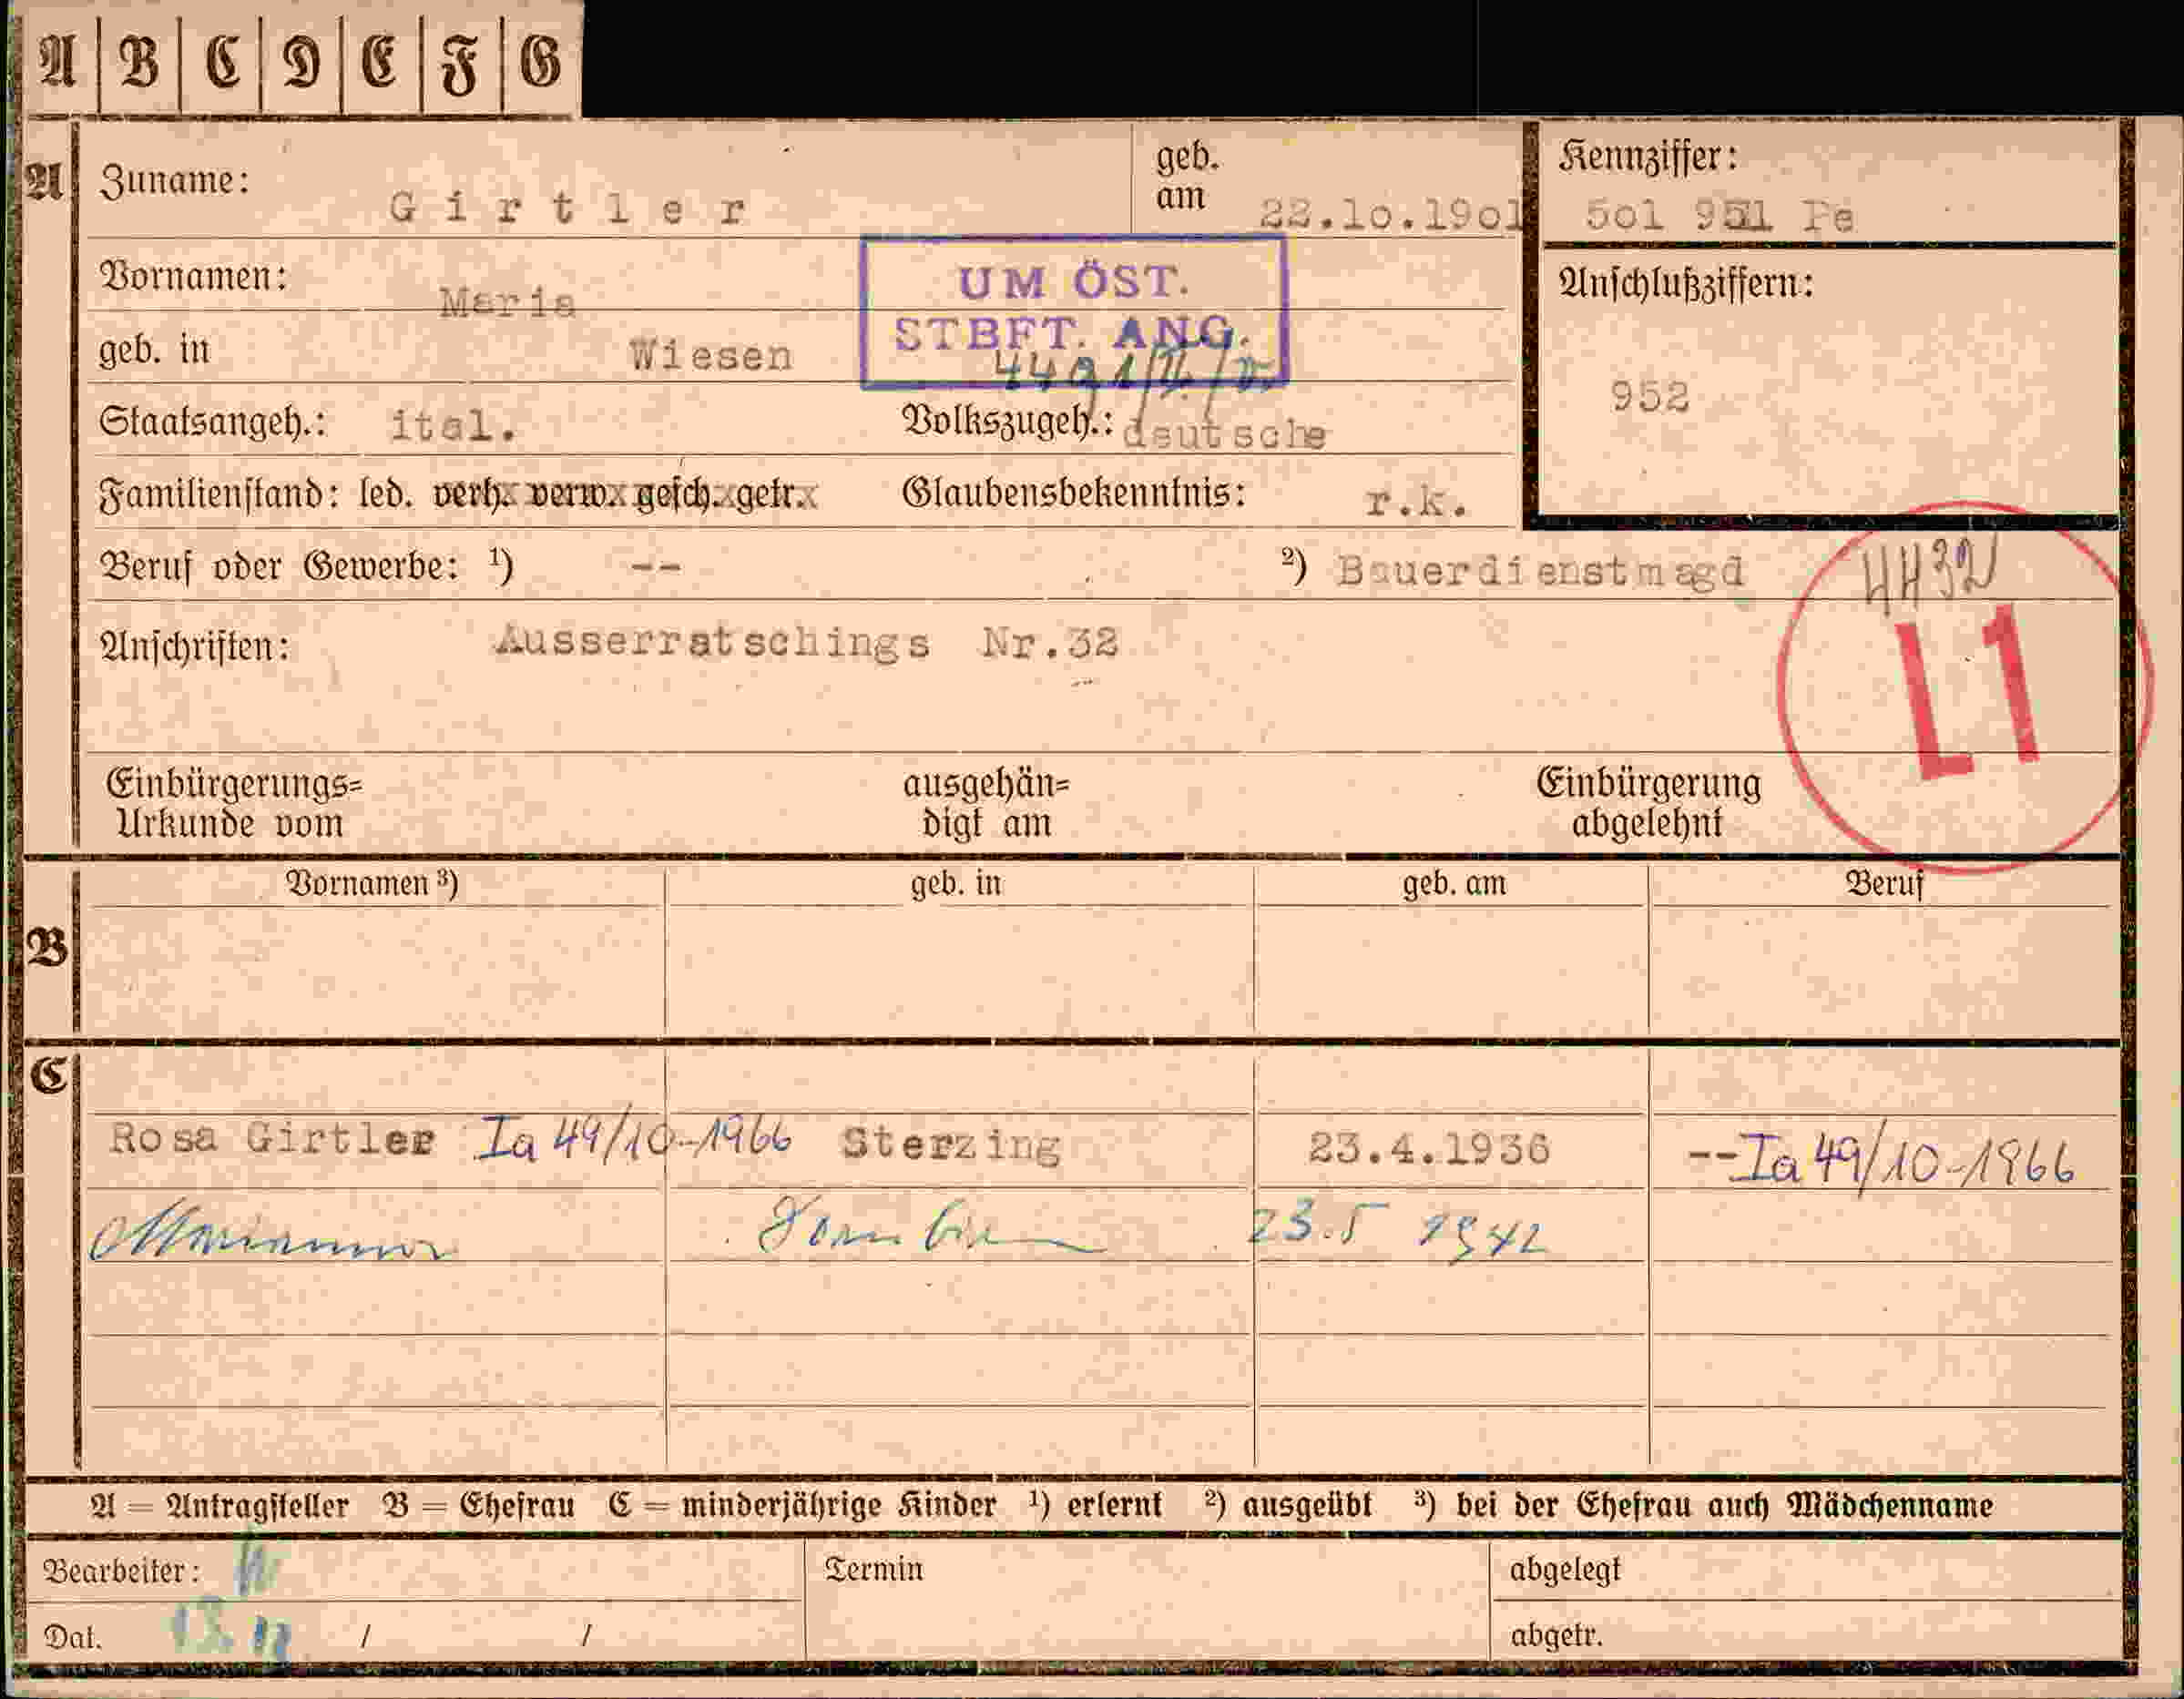 A B C D E F G
A Zuname: Girtler geb. am 22.10.1901 Kennziffer: 501 951 Pe
Vornamen: Maria UM ÖST. STBFT. ANG. Anschlußziffern:
geb. in Wiesen 952
Staatsangeh.: ital. Volkszugeh.: deutsche
Familienstand: led. verh. verw. gesch. getr. Glaubensbekenntnis: r.k.
Beruf oder Gewerbe: ¹) -- ²) Bauerdienstmagd 4432
Anschriften: Ausserratschings Nr.32 L1
Einbürgerungs= Urkunde vom ausgehän= digt am Einbürgerung abgelehnt
Vornamen ³) geb. in geb. am Beruf
B
C
Rosa Girtler Ia 49/10-1966 Sterzing 23.4.1936 --Ia 49/10-1966
Marianna Dornbirn 23.5 1942
A = Antragsteller B = Ehefrau C = minderjährige Kinder ¹) erlernt ²) ausgeübt ³) bei der Ehefrau auch Mädchenname
Bearbeiter: Termin abgelegt
Dat. / / abgetr.